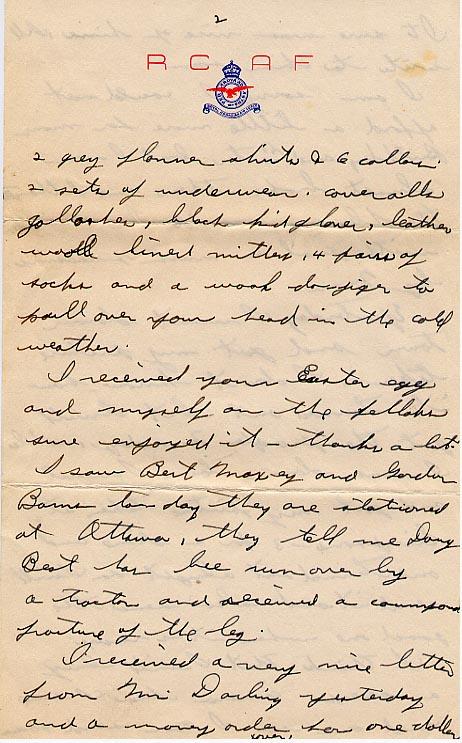 2
R C A F
2 grey flanner shirts & 6 collars.
2 sets of underwear. coveralls
galloshes, black kid gloves, leather
wooll lined mitts, 4 pairs of
socks and a wook doijiger to
pull over your head in the cold
weather.
I received your Easter egg
and myself an the fellahs
sure enjoyed it - thanks a lot.
I saw Bert Maxey and Gordon
Bams to-day they are stationed
at Ottawa, they tell me Doug
Beat has bee run over by
a tractor and received a compound
fracture of the leg.
I received a very nice letter
from Mr. Darling yesterday
and a money order for one dollar
over